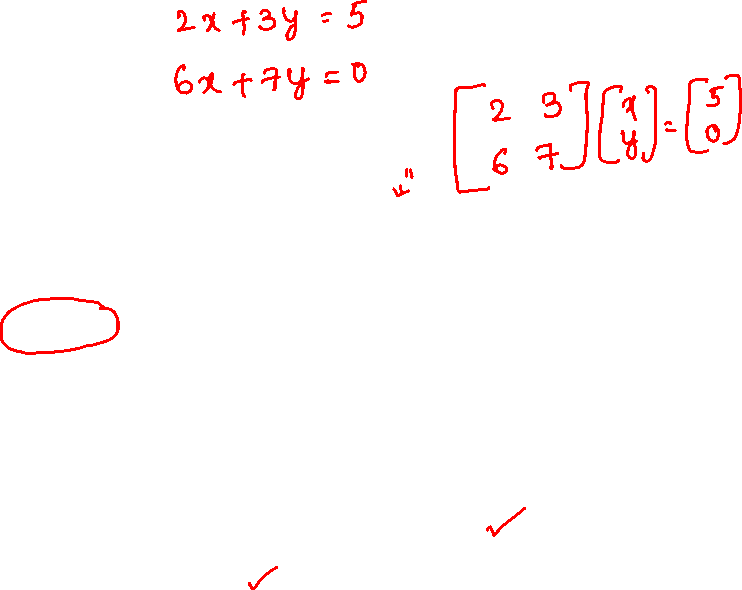 2x+3y=5
6x+7y=0
[2 3
6 7] [x
y] = [5
0]